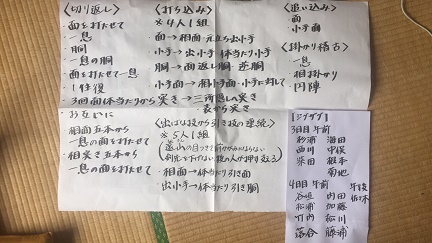 〈切り返し〉
・面を打たせて
・一息
・胴
・一息の胴
・面を打たせて一息
・1往復
・3回面体当たりから突き→三所隠しへ突き
→表から突き
・お互いに
・相面五本から
一息の面を打たせて
・相突き五本から
一息の面を打たせて
〈打ち込み〉
※4人1組
面→相面・元立ち出小手
小手→出小手 体当たり小手
胴→面返し胴・逆胴
小手面→相小手面・小手に対して
〈出ばな技から引き技の連続〉
※5人1組
・相面→体当たり引き面
・出小手→体当たり引き胴
〈追い込み〉
・面
・小手面
〈掛かり稽古〉
・一息
・相掛かり
・円陣
3日目 午前
杉浦 海田
西川 中俣
柴田 根本
菊地
4日目 午前 午後
谷垣 内田 佐々木
松浦 加藤
竹内 松川
落合 藤浦